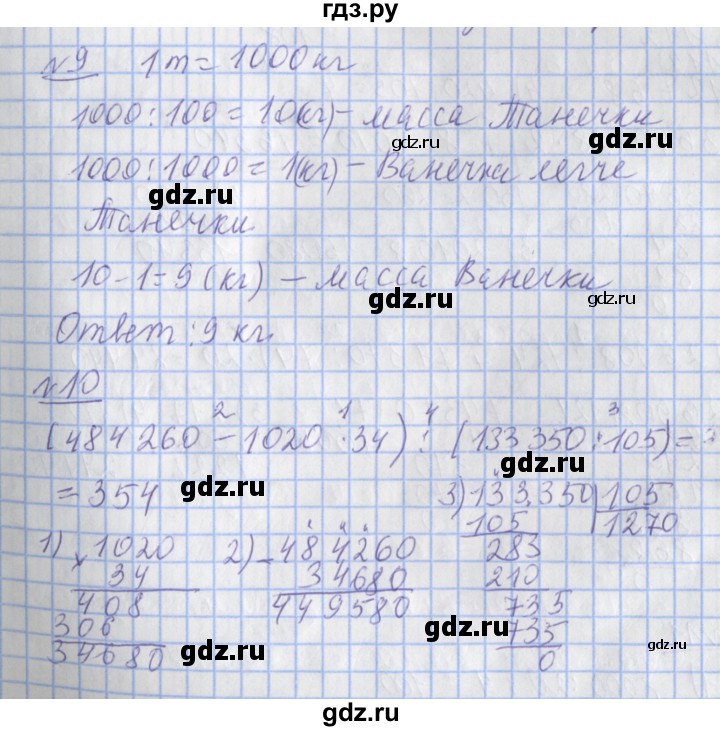 гдз.ру
№9 1 т = 1000 кг
1000 : 100 = 10(кг) – масса Танечки
gdz.ru
1000 : 1000 = 1(кг) – Ванечка легче
gdz.ru
Танечки
gdz.ru
10 – 1 = 9 (кг) – масса Ванечки
gdz.ru
gdz.ru
Ответ: 9 кг.
№10
2 1 4 3
(484 260 – 1020 · 34) : (133 350 : 105) =
gdz.ru
= 354
gdz.ru
gdz.ru
3) 133350 105
105 1270
1) × 1020 2) – 484260 283
34 34680 210
408 449580 735
306 735
34680 0
gdz.ru
gdz.ru
gdz.ru
gdz.ru